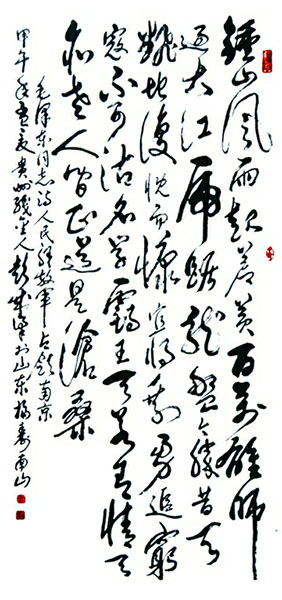 鍾山风雨起蒼黄百万雄师
过大江虎踞龙盘今胜昔天
翻地覆慨而慷宜将剩勇追窮
寇不可沽名学霸王天若有情天
亦老人间正道是滄桑
毛泽东同志诗人民解放軍占领南京
甲午年孟夏贵州织金人彭书山东南山